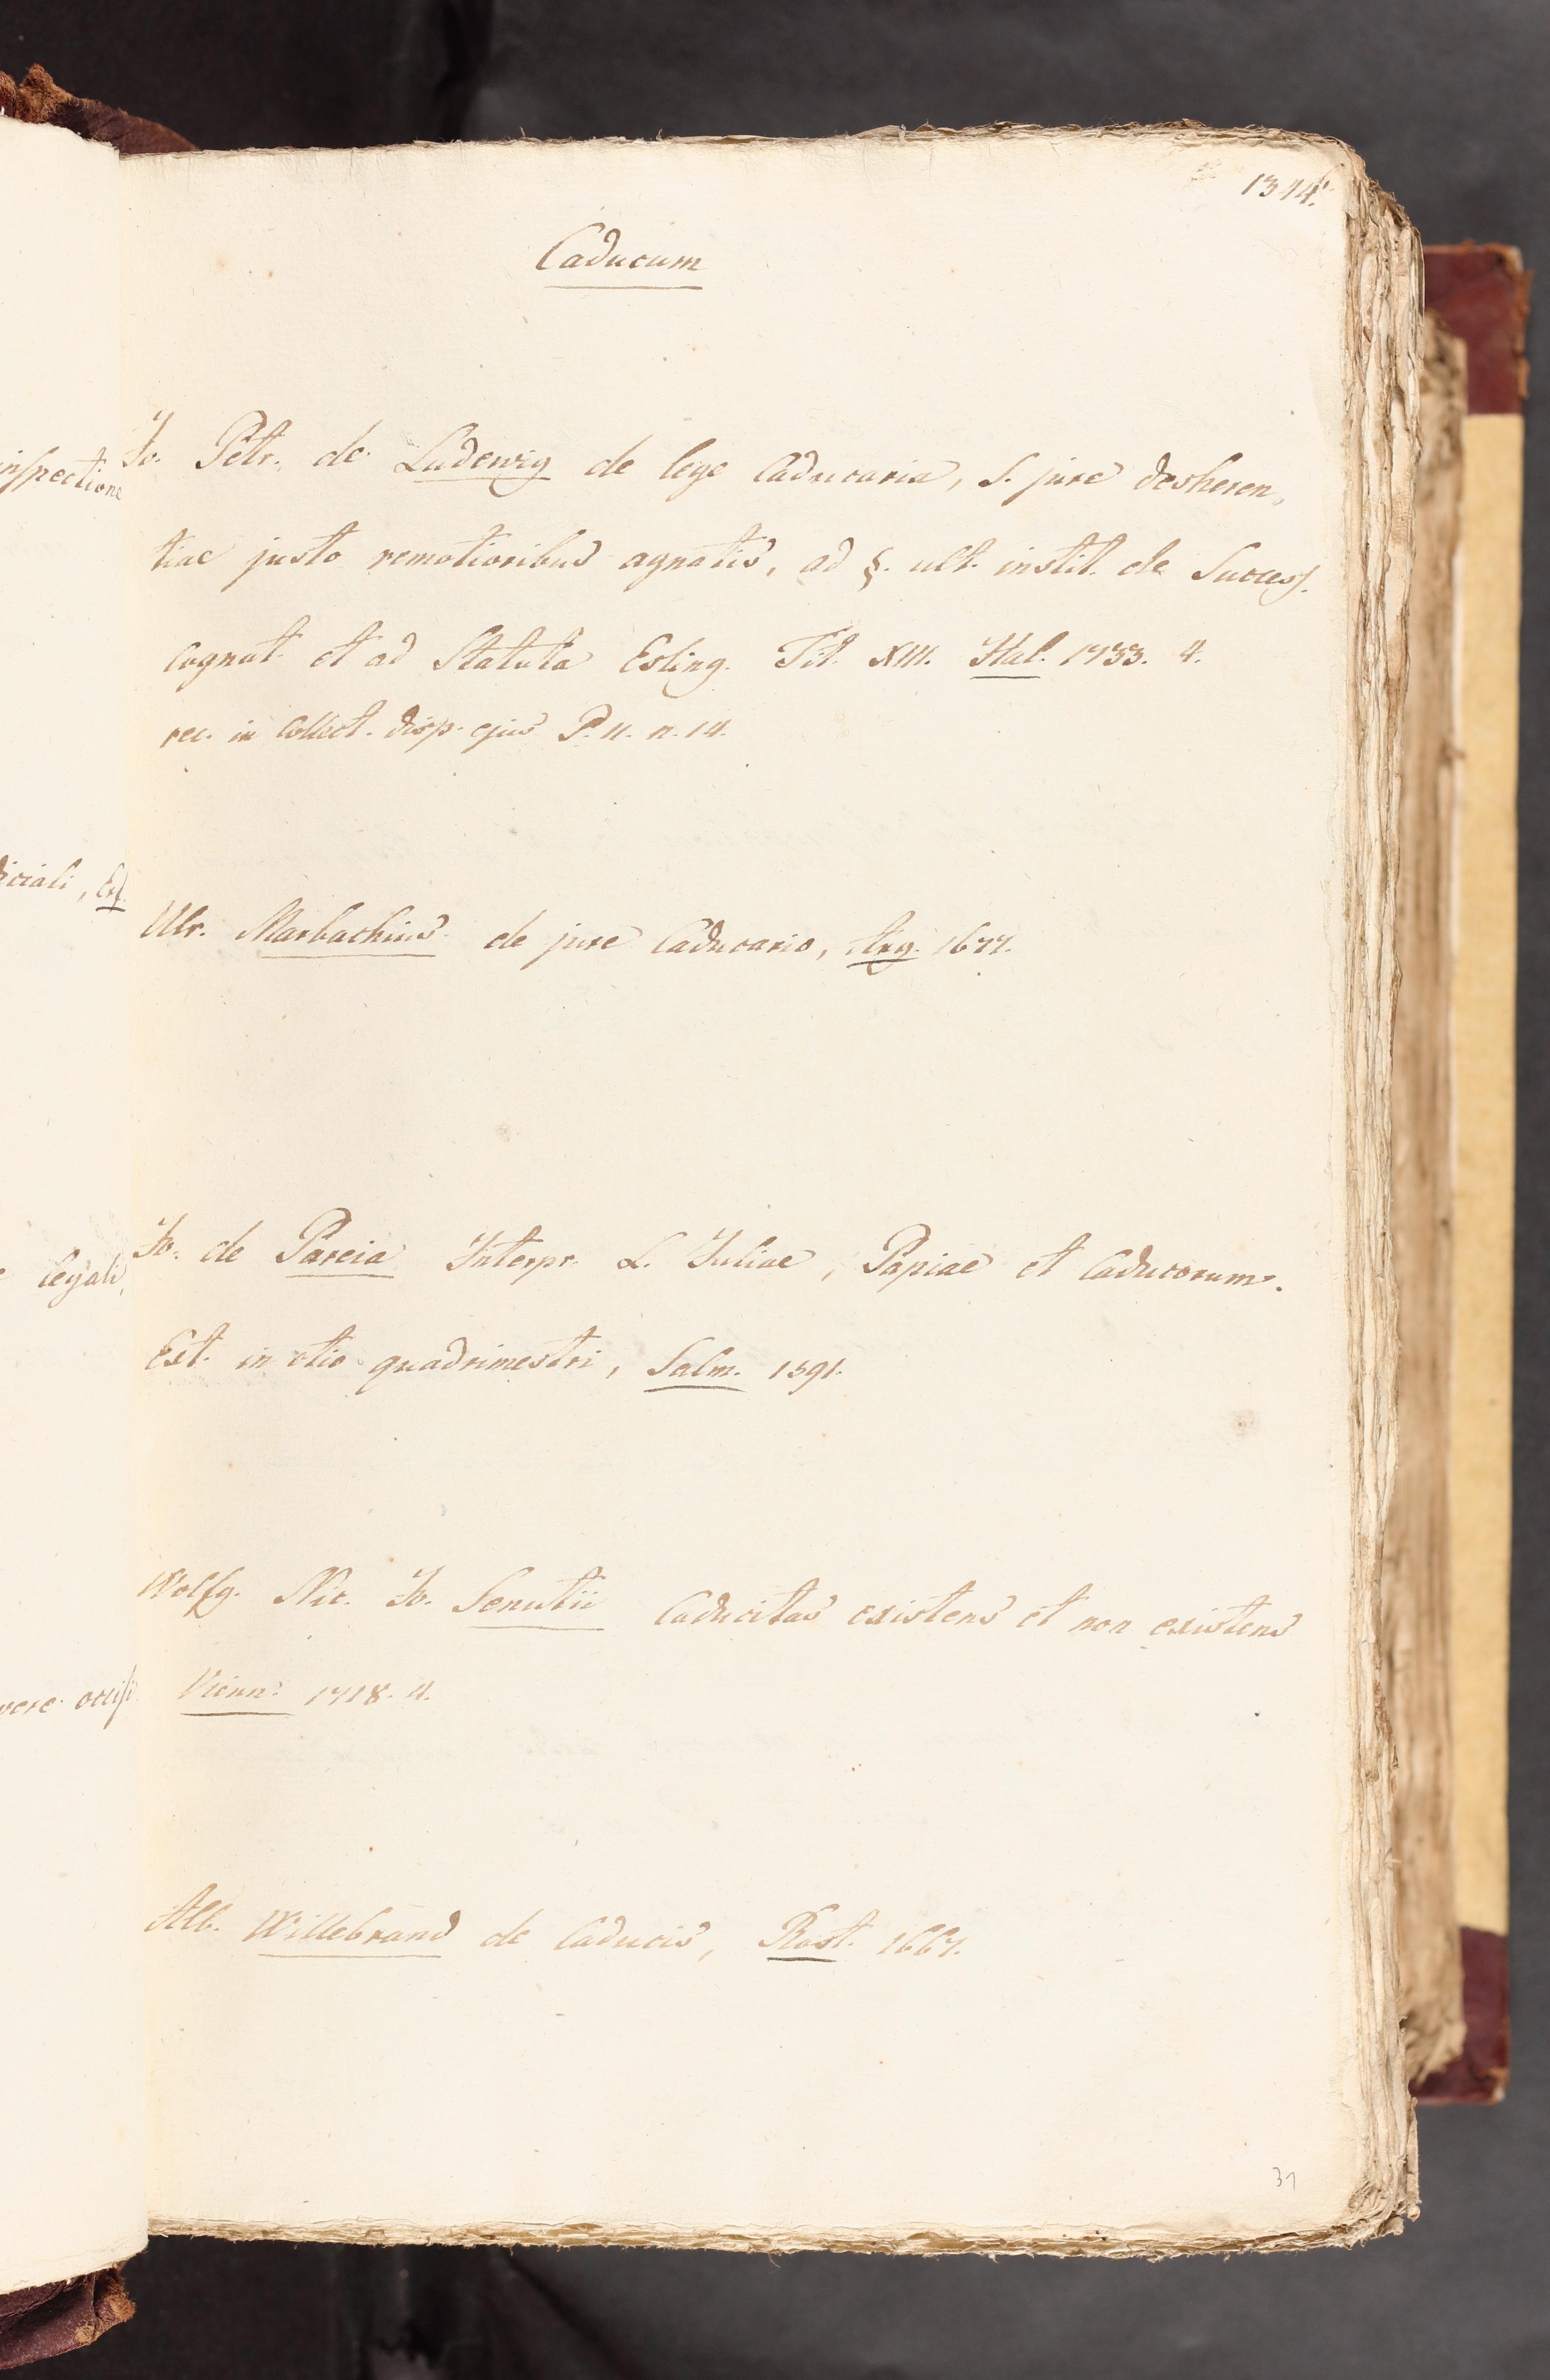 1314.
Caducum
inspectione
Jo. Petr. de Ludewig de lege Caducaria, s. jure desheren,
tiae justo remotioribus agnatis, ad §. ult. instit. de Success.
Cognat. et ad Statuta Esling. Tit. XIII. Hal. 1733. 4.
rec. in Collect. disp. ejus P. II. n. 14.
iciali, Erf.
Ulr. Marbachius de jure Caducario, Arg. 1677.
legali,
Jo. de Pareia Interpr. L. Juliae, Papiae et Caducorum.
Ext. in otio quadrimestri, Salm. 1591.
Wolfg. Nic. Jo. Senutii Caducitas existens et non existens
vere occisi
Vienn. 1718. 4.
Alb. Willebrand de Caducis, Rost. 1667.
31